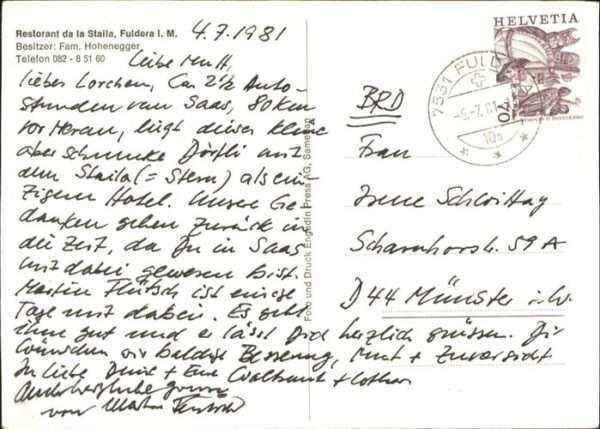 Restorant da la Staila, Fuldera i. M.
Besitzer: Fam. Hohenegger
Telefon 082 - 8 51 60
4.7.1981
Liebe Mutti,
liebes Lorchen, Ca 2½ Auto-
stunden von Saas, 80 km
vor Meran, liegt dieses kleine
aber schmucke Dörfli mit
dem Staila (= Stern) als ein-
zigem Hotel. Unsere Ge-
danken gehen zurück in
die Zeit, da Du in Saas
mit dabei gewesen bist.
Martin Flütsch ist einige
Tage mit dabei. Es geht
ihm gut und er lässt Dich herzlich grüssen. Dir
wünschen wir baldige Besserung, Mut + Zuversicht
In Liebe Deine + Eure Waltraut + Lothar
von Martin Flütsch
Foto und Druck Engadin Press AG, Samedan
HELVETIA
70
7531 FULDERA
BRD
Frau
Irene Schlottag
Scharnhorststr. 59 A
D 44 Münster i. W.